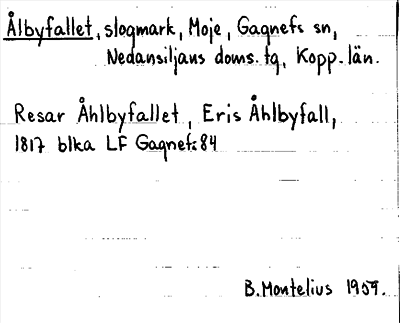 Ålbyfallet, slogmark, Moje, Gagnefs sn,
Nedansiljans doms. tg, Kopp. län.
Resar Åhlbyfallet, Eris Åhlbyfall,
1817 blka LF Gagnef: 84
B. Montelius 1959.